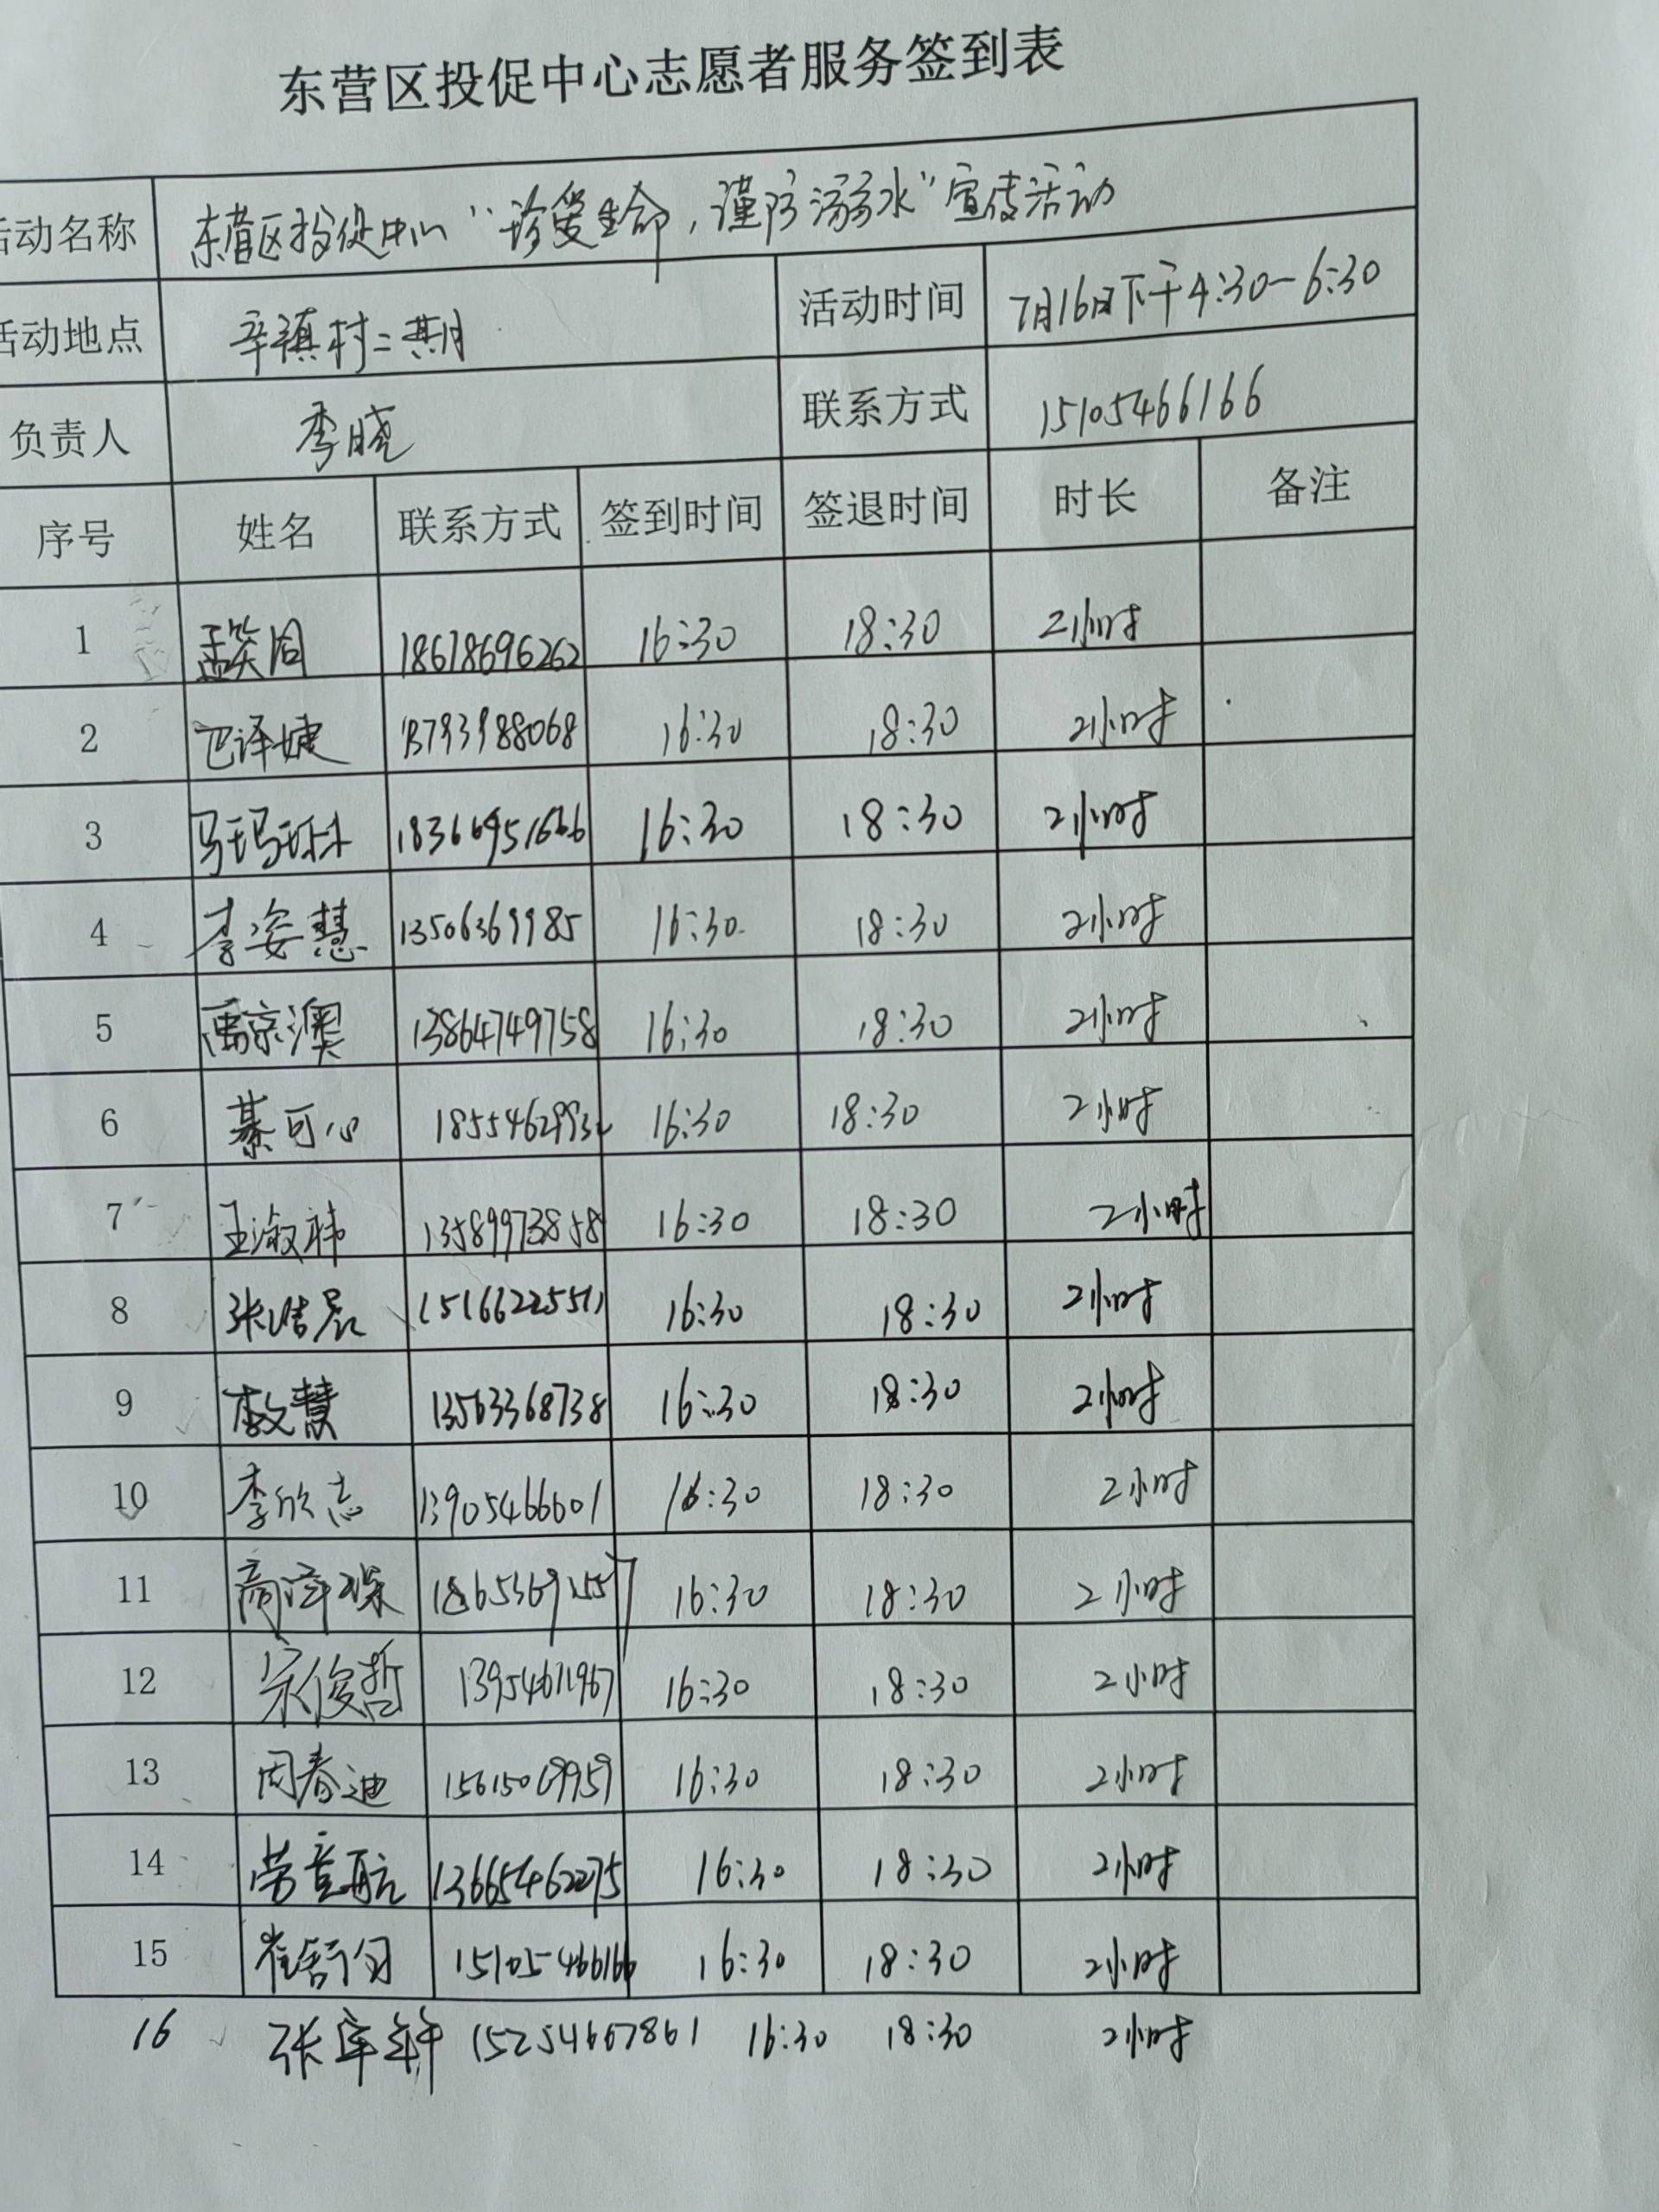 东营区投促中心志愿者服务签到表
活动名称 东营区投促中心“珍爱生命，谨防溺水”宣传活动
活动地点 辛镇村二期 活动时间 7月16日下午4:30-6:30
负责人 李晓 联系方式 15105466166
序号 姓名 联系方式 签到时间 签退时间 时长 备注
1 孟笑同 18678696262 16:30 18:30 2小时
2 巴泽婕 13793988068 16:30 18:30 2小时
3 马玛琳 16:30 18:30 2小时
4 李姿慧 13506369985 16:30 18:30 2小时
5 禹京澳 13864749758 16:30 18:30 2小时
6 綦可心 16:30 18:30 2小时
7 王淑祎 13589973858 16:30 18:30 2小时
8 张浩辰 15166225511 16:30 18:30 2小时
9 李文慧 13563368738 16:30 18:30 2小时
10 李欣志 13905466601 16:30 18:30 2小时
11 商泽琛 16:30 18:30 2小时
12 宋俊哲 13954671967 16:30 18:30 2小时
13 周春迪 15615069959 16:30 18:30 2小时
14 劳童航 13665462275 16:30 18:30 2小时
15 崔舒匀 15105466166 16:30 18:30 2小时
16 张宇轩 15254667861 16:30 18:30 2小时